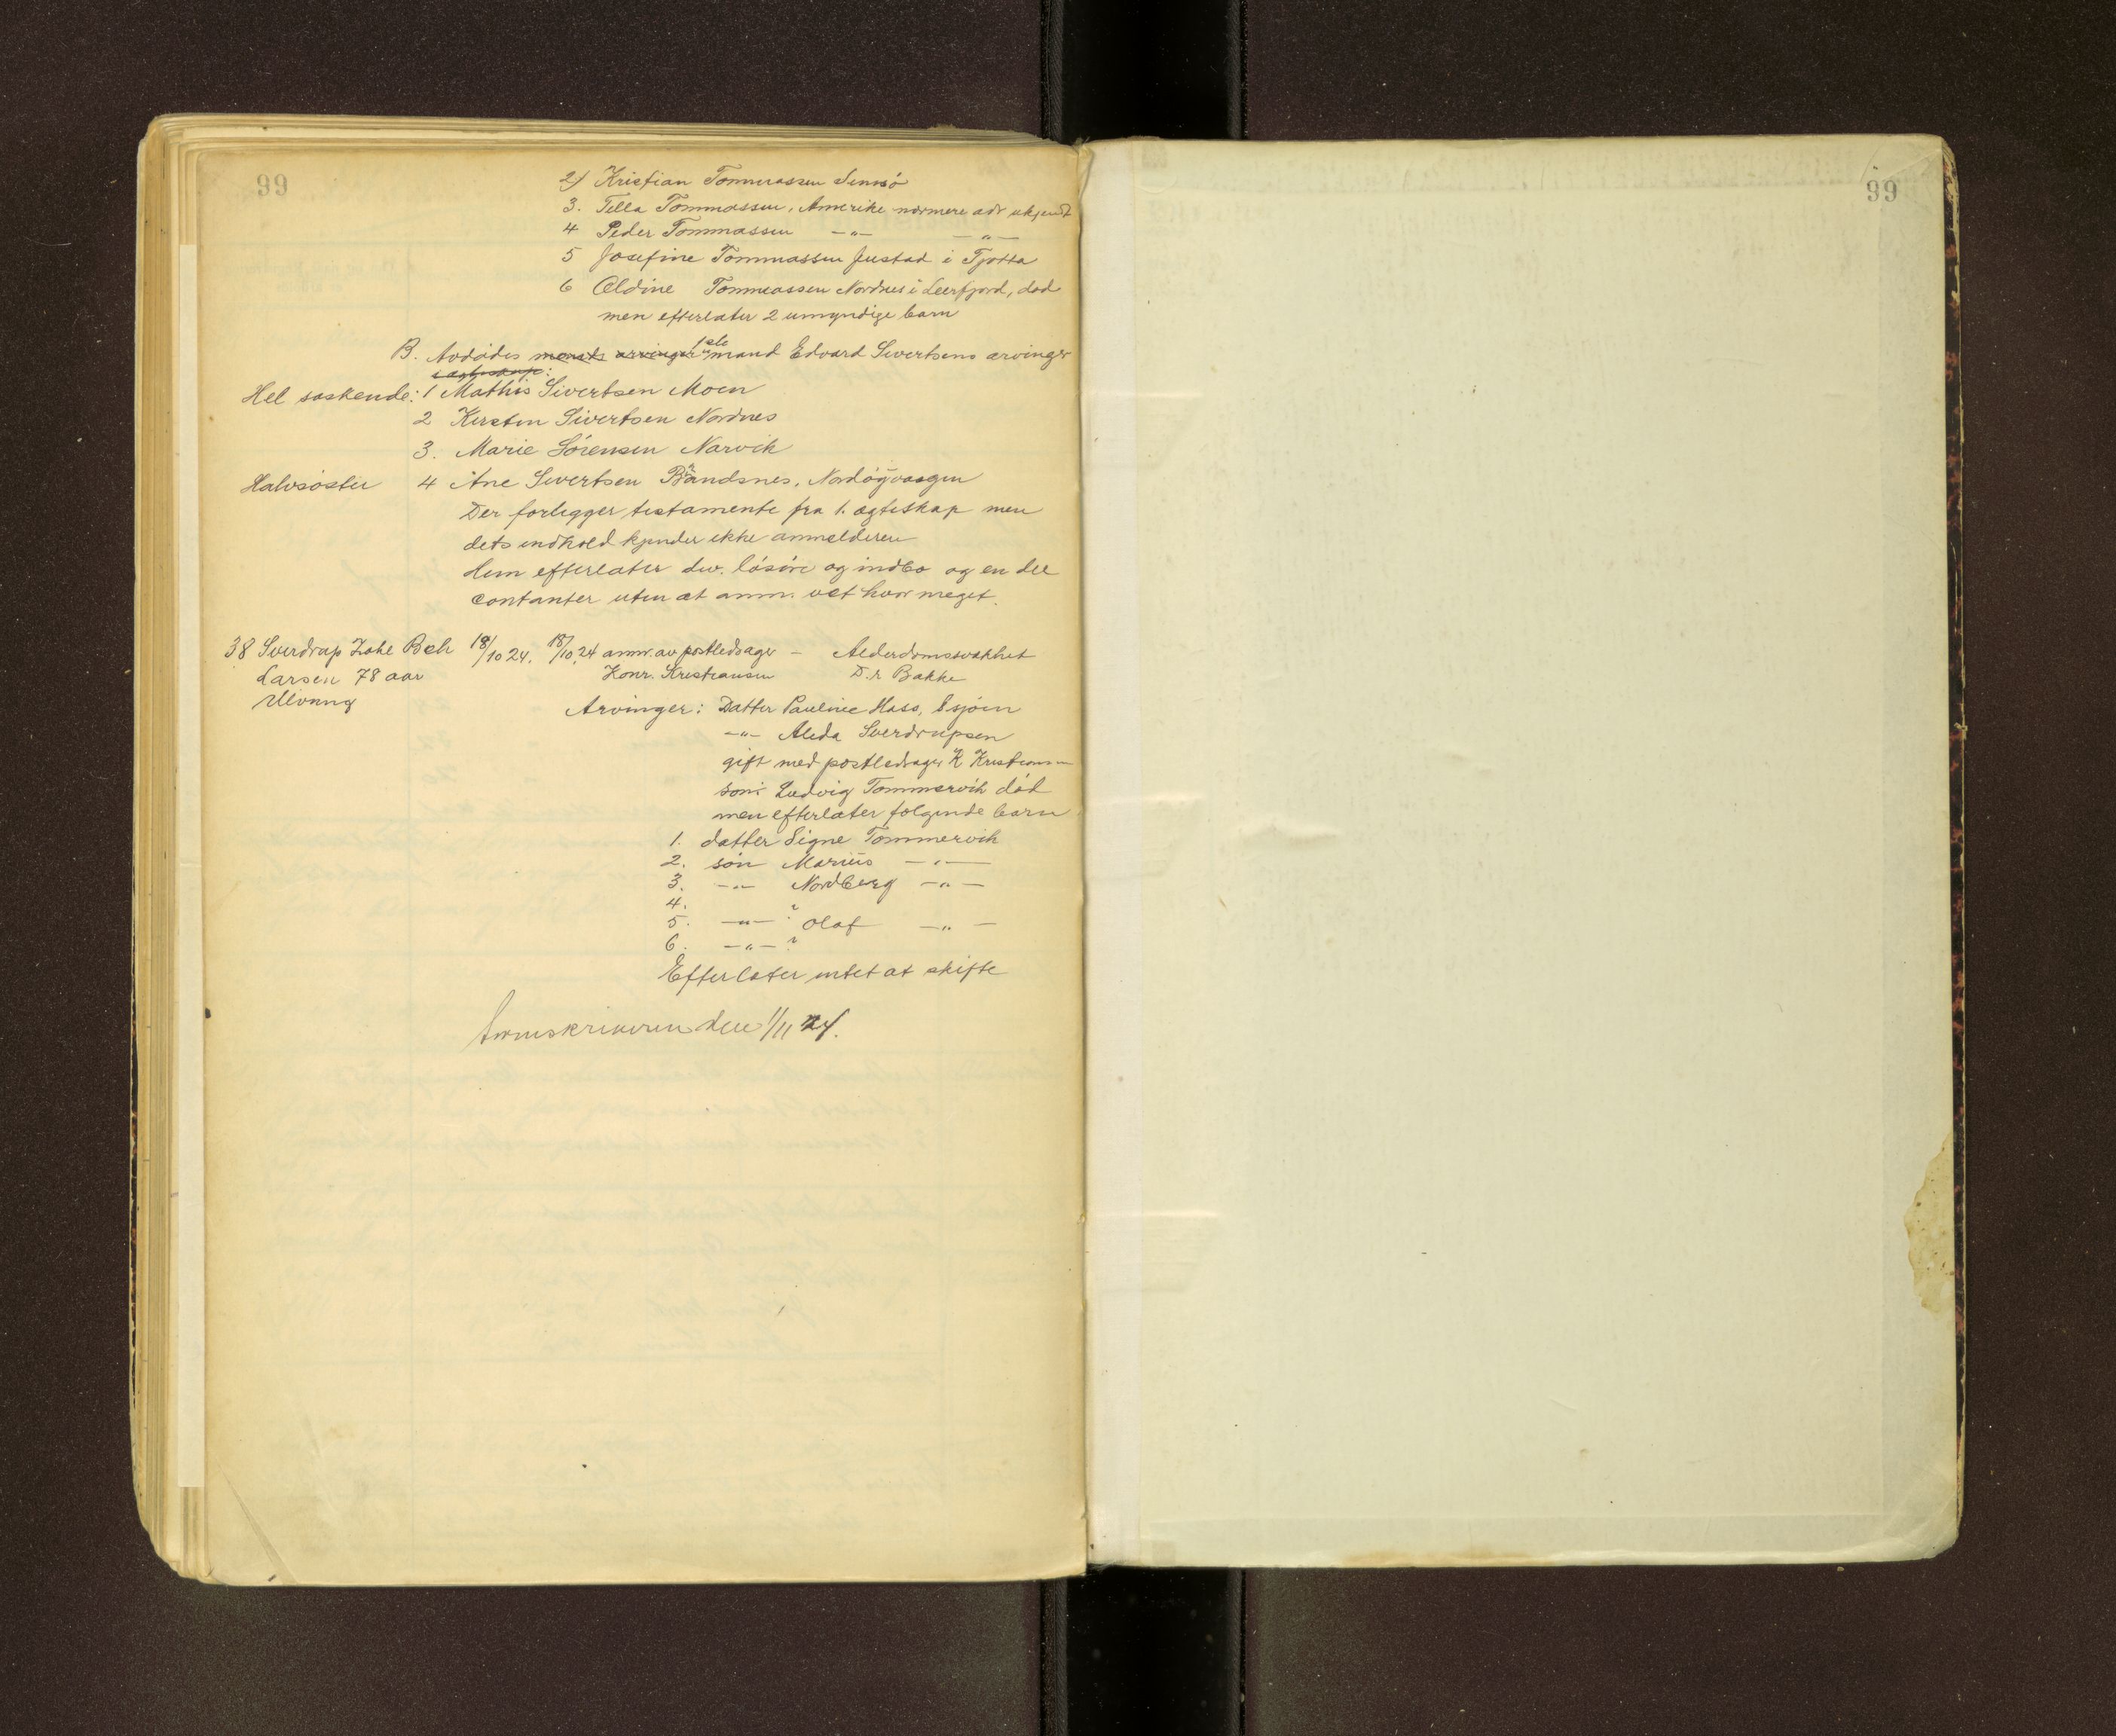 99
2) Kristian Tommassen
3. Tella Tommassen, Amerike nærmere adr ukjendt
4 Peder Tommassen -"- -"-
5 Josefine Tommassen Justad i Tjøtta
6 Oldine Tommassen Nordnes i Leerfjord, død
men efterlater 2 umyndige barn
B. Avdødes mands arvinger mand Edvard Sivertsens arvinger
Hel søskende: 1 Mathis Sivertsen Moen
2 Kirsten Sivertsen Nordnes
3. Marie Sörensen Narvik
Halvsøster 4 Ane Sivertsen Brandsnes,
Der forligger testamente fra 1. ægteskap men
dets indhold kjender ikke anmelderen
Hun efterlater div. lösöre og indbo og en del
contanter uten at anm. vet hvor meget.
38 Sverdrup Zahl Beh 18/10 24. 18/10.24 anm. av postledsager - Alderdomssvakhet
Larsen 78 aar Konr. Kristiansen D.r Bakke
Ulvang
Arvinger: Datter Pauline Hass,
-"- Alida Sverdrupsen
gift med postledsager K Kristians-
søn: Ludvig Tommervik död
men efterlater følgende barn
1. datter Signe Tommervik
2. sön Marius -"-
3. -"- Nordberg -"-
4. ?
5. -"- Olaf -"-
6. -"- ?
Efterlater intet at skifte
Sorenskriveren den 1/11 24.
99